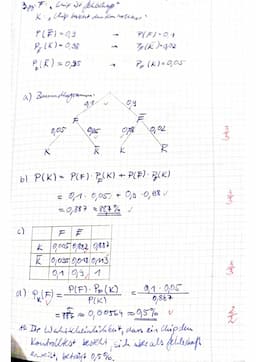 F: „Chip ist fehlerhaft"
K: „Chip besteht den Kontrolltest"
P(F̅) = 0,9 → P(F) = 0,1
P_F̅(K) = 0,98 → P_F̅(K̅) = 0,02
P_F(K̅) = 0,95 → P_F(K) = 0,05
a) Baumdiagramm:
0,1 0,9
F F̅
0,05 0,95 0,98 0,02
K K̅ K K̅
b) P(K) = P(F) · P_F(K) + P(F̅) · P_F̅(K)
= 0,1 · 0,05 + 0,9 · 0,98
= 0,887 = 88,7%
c)
F F̅
K 0,005 0,882 0,887
K̅ 0,095 0,018 0,113
0,1 0,9 1
d) P_K(F) = P(F) · P_F(K) / P(K) = 0,1 · 0,05 / 0,887
= 0,00564 ≈ 0,5%
Die Wahrscheinlichkeit, dass ein Chip den
Kontrolltest besteht sich aber als fehlerhaft
erweist, beträgt 0,5%.